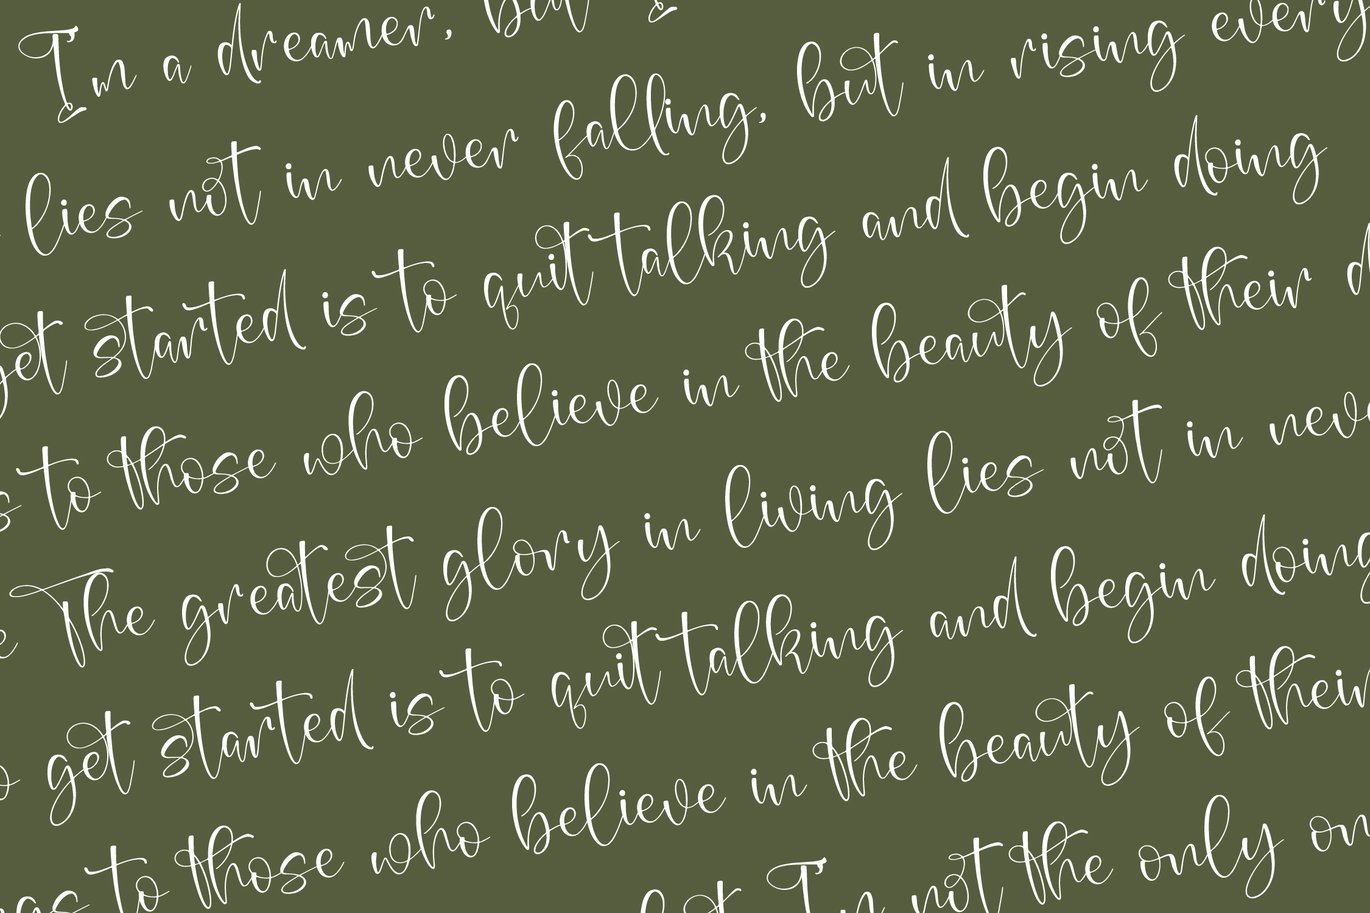 I'm a dreamer, but I
lies not in never falling, but in rising every
get started is to quit talking and begin doing
s to those who believe in the beauty of their d
e The greatest glory in living lies not in neve
o get started is to quit talking and begin doing
as to those who believe in the beauty of their
but I'm not the only on